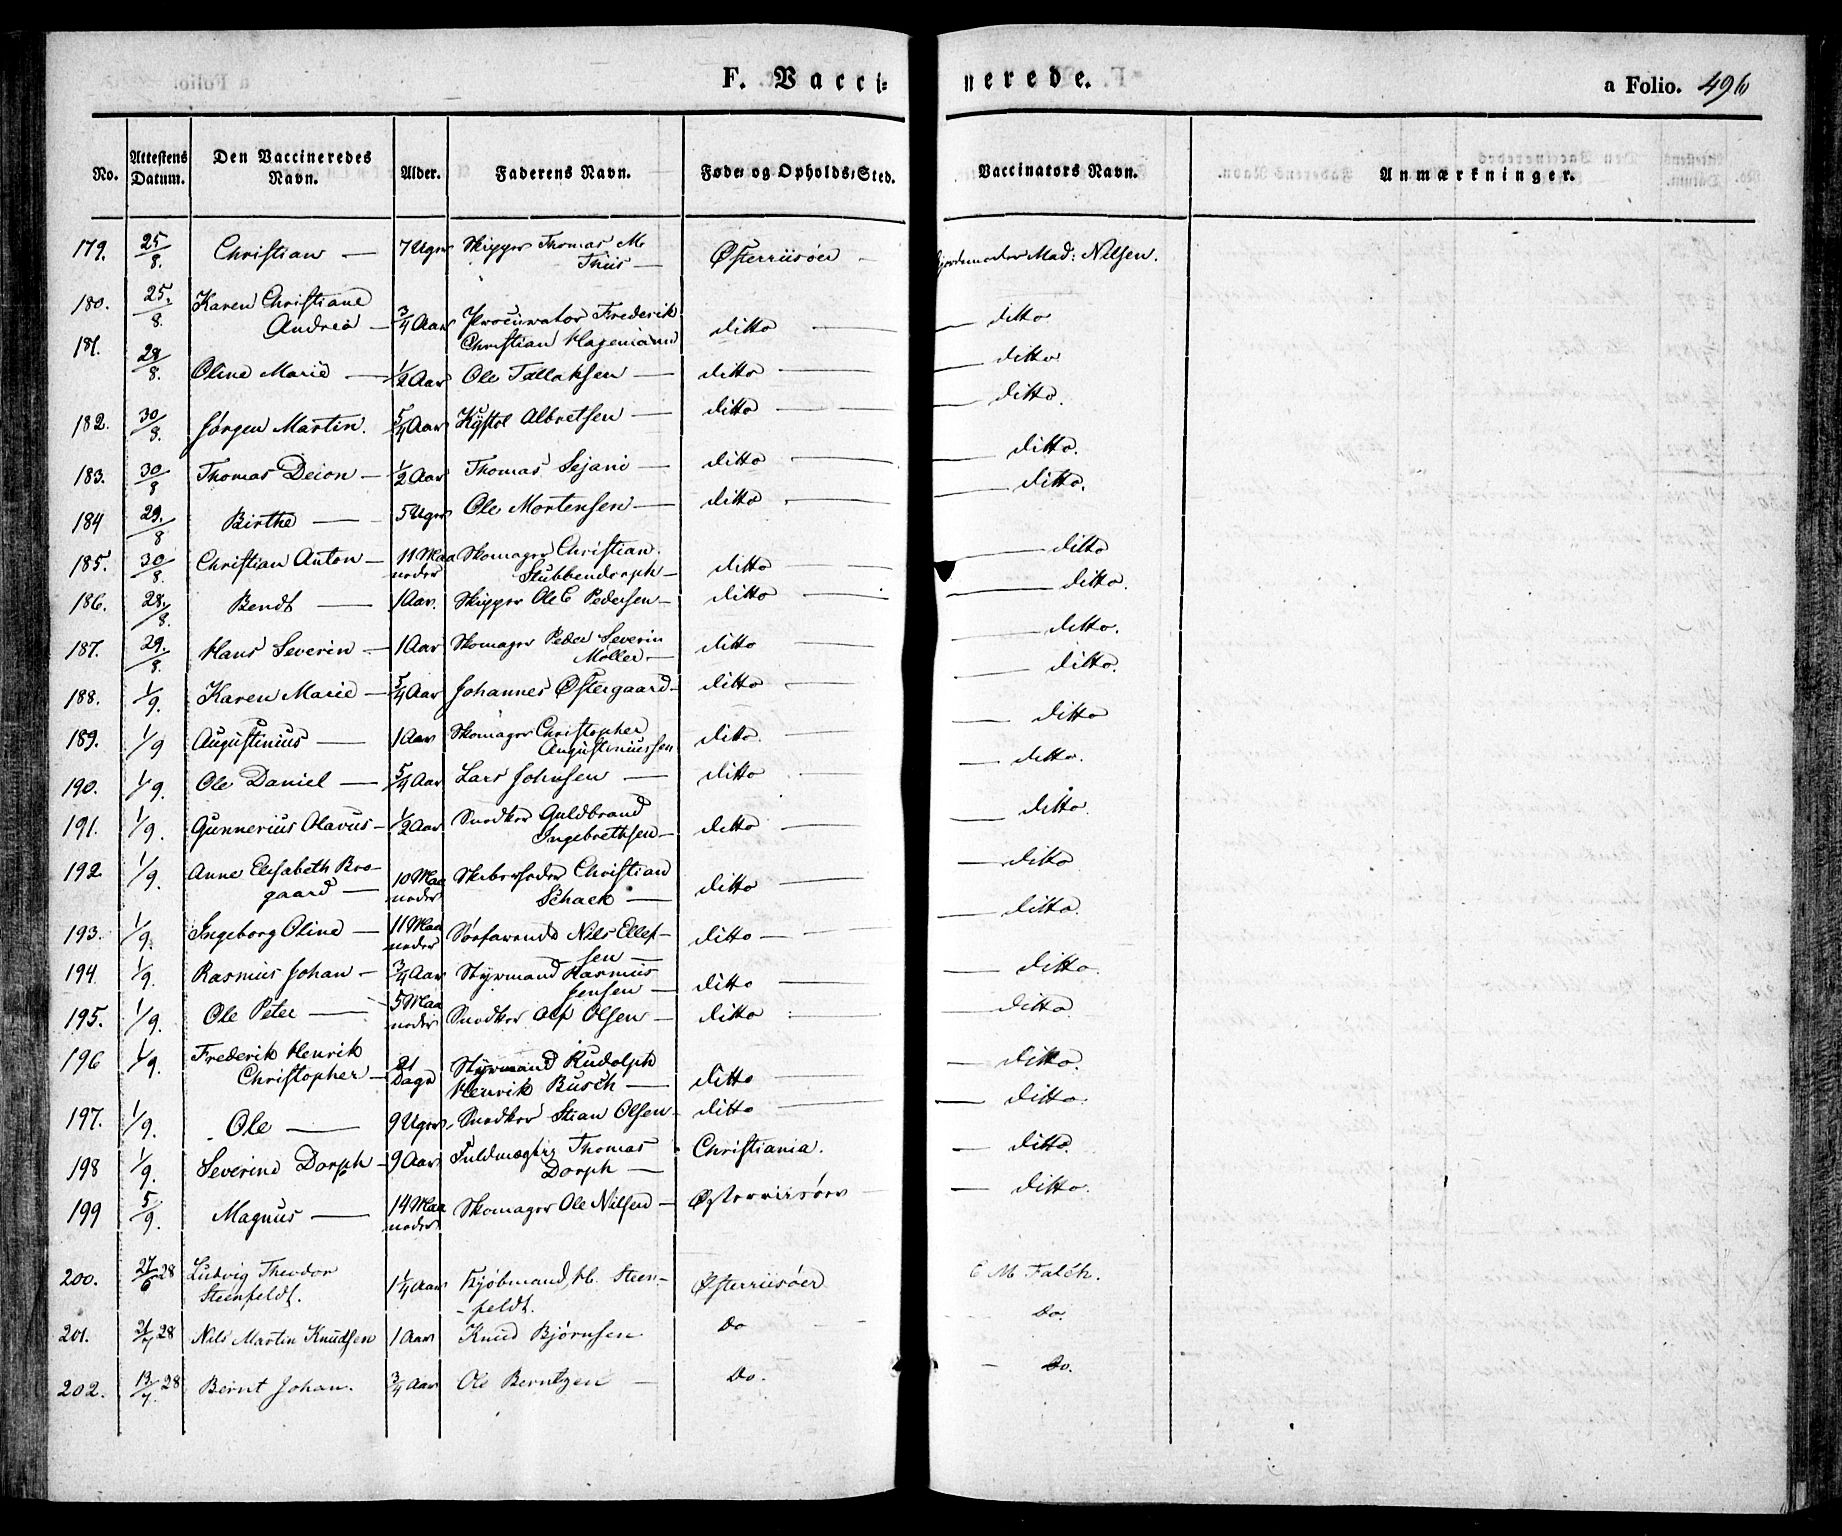 F. Vacci=
nerede.
a Folio. 496
No.
Attestens Datum.
Den Vaccineredes Navn.
Alder.
Faderens Navn.
Føde= og Opholds=Sted.
Vaccinators Navn.
Anmærkninger.
179. 25/8. Christian — 7 Uger Skipper Thomas M. Thiis — Østerriisøer — Jordemoder Mad: Nilsen.
180. 25./8. Karen Christiane Andrea — 3/4 Aar Procurator Frederik Christian Hagemann ditto — ditto
181. 28/8. Oline Marie — 1/2 Aar Ole Tallaksen — ditto — ditto
182. 30/8. Jørgen Martin. 5/4 Aar Kystol Albretsen — ditto — ditto.
183. 30/8 Thomas Deion — 1/2 Aar Thomas Sejani — ditto — ditto.
184 29./8 Birthe — 5 Uger Ole Mortensen — ditto — ditto.
185. 30/8. Christian Anton — 11 Maaneder Skomager Christian Stubbendorph — ditto — ditto
186. 28./8. Bendt — 1 Aar. Skipper Ole C Pedersen — ditto — ditto.
187. 29./8. Hans Severin — 1 Aar Skomager Peder Severin Møller — ditto — ditto.
188. 1/9. Karen Marie — 5/4 Aar Johannes Østergaard — ditto — ditto.
189. 1/9 Augustinius — 1 Aar Skomager Christopher Augustiniussen ditto. — ditto
190. 1/9. Ole Daniel — 5/4 Aar Lars Johnsen — ditto — ditto.
191. 1/9. Gunnerius Olavus — 1/2 Aar Snedker Guldbrand Ingebrethsen — ditto — ditto
192 1/9. Anne Elisabeth Brogaard — 10 Maaneder Skibsreder Christian Schack — ditto — ditto
193. 1/9. Ingeborg Oline — 11 Maaneder Søefarende Nils Ellefsen — ditto — ditto.
194 1/9. Rasmus Johan — 3/4 Aar Styrmand Rasmus Jensen — ditto — ditto.
195. 1/9. Ole Peter — 5 Maaneder Snedker Alf Olsen — ditto — ditto
196 1/9. Frederik Henrik Christopher — 21 Dage Styrmand Rudolph Henrik Busch — ditto — ditto.
197. 1/9. Ole — 9 Uger Snedker Stian Olsen — ditto — ditto.
198 1/9. Severine Dorph — 9 Aar Fuldmægtig Thomas Dorph — Christiania. — ditto.
199 5/9. Magnus — 14 Maaneder Skomager Ole Nilsen — Østerriisøer — ditto.
200. 27/6 28 Ludvig Theodor Steenfeldt. 1 1/4 Aar Kjøbmand, H. Steenfeldt. Østerriisøer C M Falch.
201. 21/7 28 Nils Martin Knudsen 1 Aar Knud Bjørnsen Do — Do.
202. 12/7. 28 Bernt Johan. 3/4 Aar Ole Berntzen — Do. — Do.